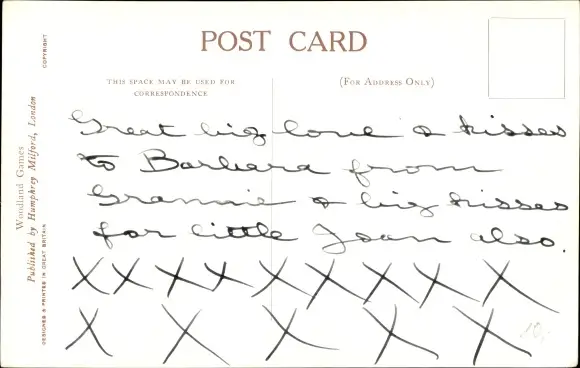 POST CARD
THIS SPACE MAY BE USED FOR
CORRESPONDENCE
(FOR ADDRESS ONLY)
COPYRIGHT
Woodland Games
Published by Humphrey Milford, London
DESIGNED & PRINTED IN GREAT BRITAIN
Great big love & kisses
to Barbara from
Grannie & big kisses
for little Joan also.
X X X X X X X X X
X X X X X